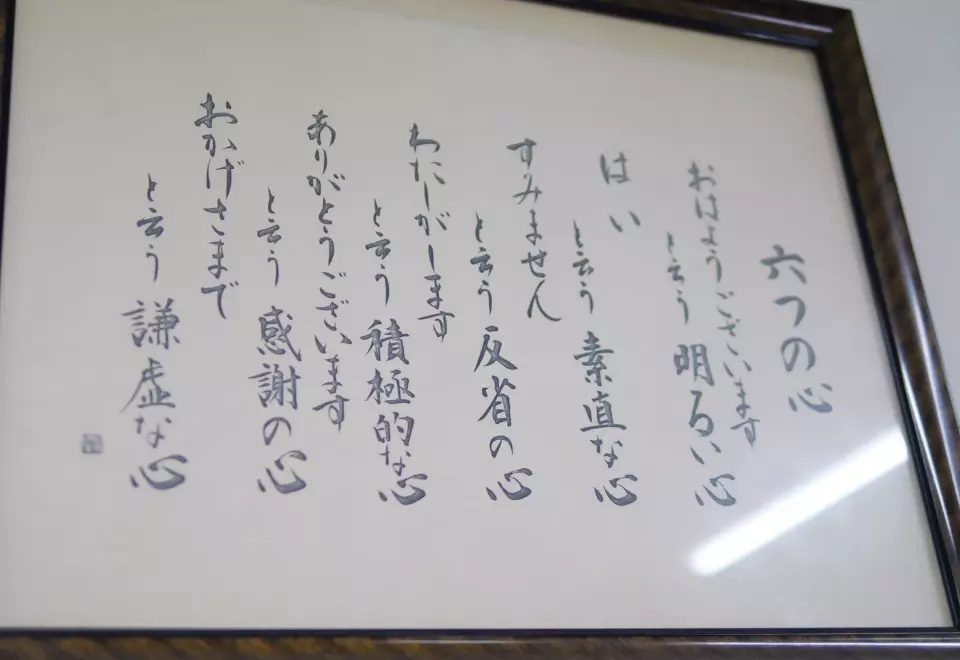 六つの心
おはようございます
と云う 明るい心
はい
と云う 素直な心
すみません
と云う 反省の心
わたしがします
と云う 積極的な心
ありがとうございます
と云う 感謝の心
おかげさまで
と云う 謙虚な心